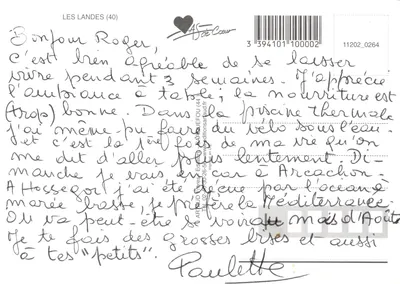 LES LANDES (40)
3 394101 100002
11202_0264
Bonjour Roger,
c'est bien agréable de se laisser
vivre pendant 3 semaines. J'apprécie
l'ambiance à table; la nourriture est
(trop) bonne. Dans la piscine thermale
j'ai même pu faire du vélo sous l'eau
et c'est la 1ère fois de ma vie qu'on
me dit d'aller plus lentement. Di
manche je vais en car à Arcachon
A Hossegor j'ai été déçue par l'océan à
marée basse, je préfère la Méditerranée
On va peut-être se voir au mois d'Août
Je te fais des grosses bises et aussi
à tes "petits".
Paulette